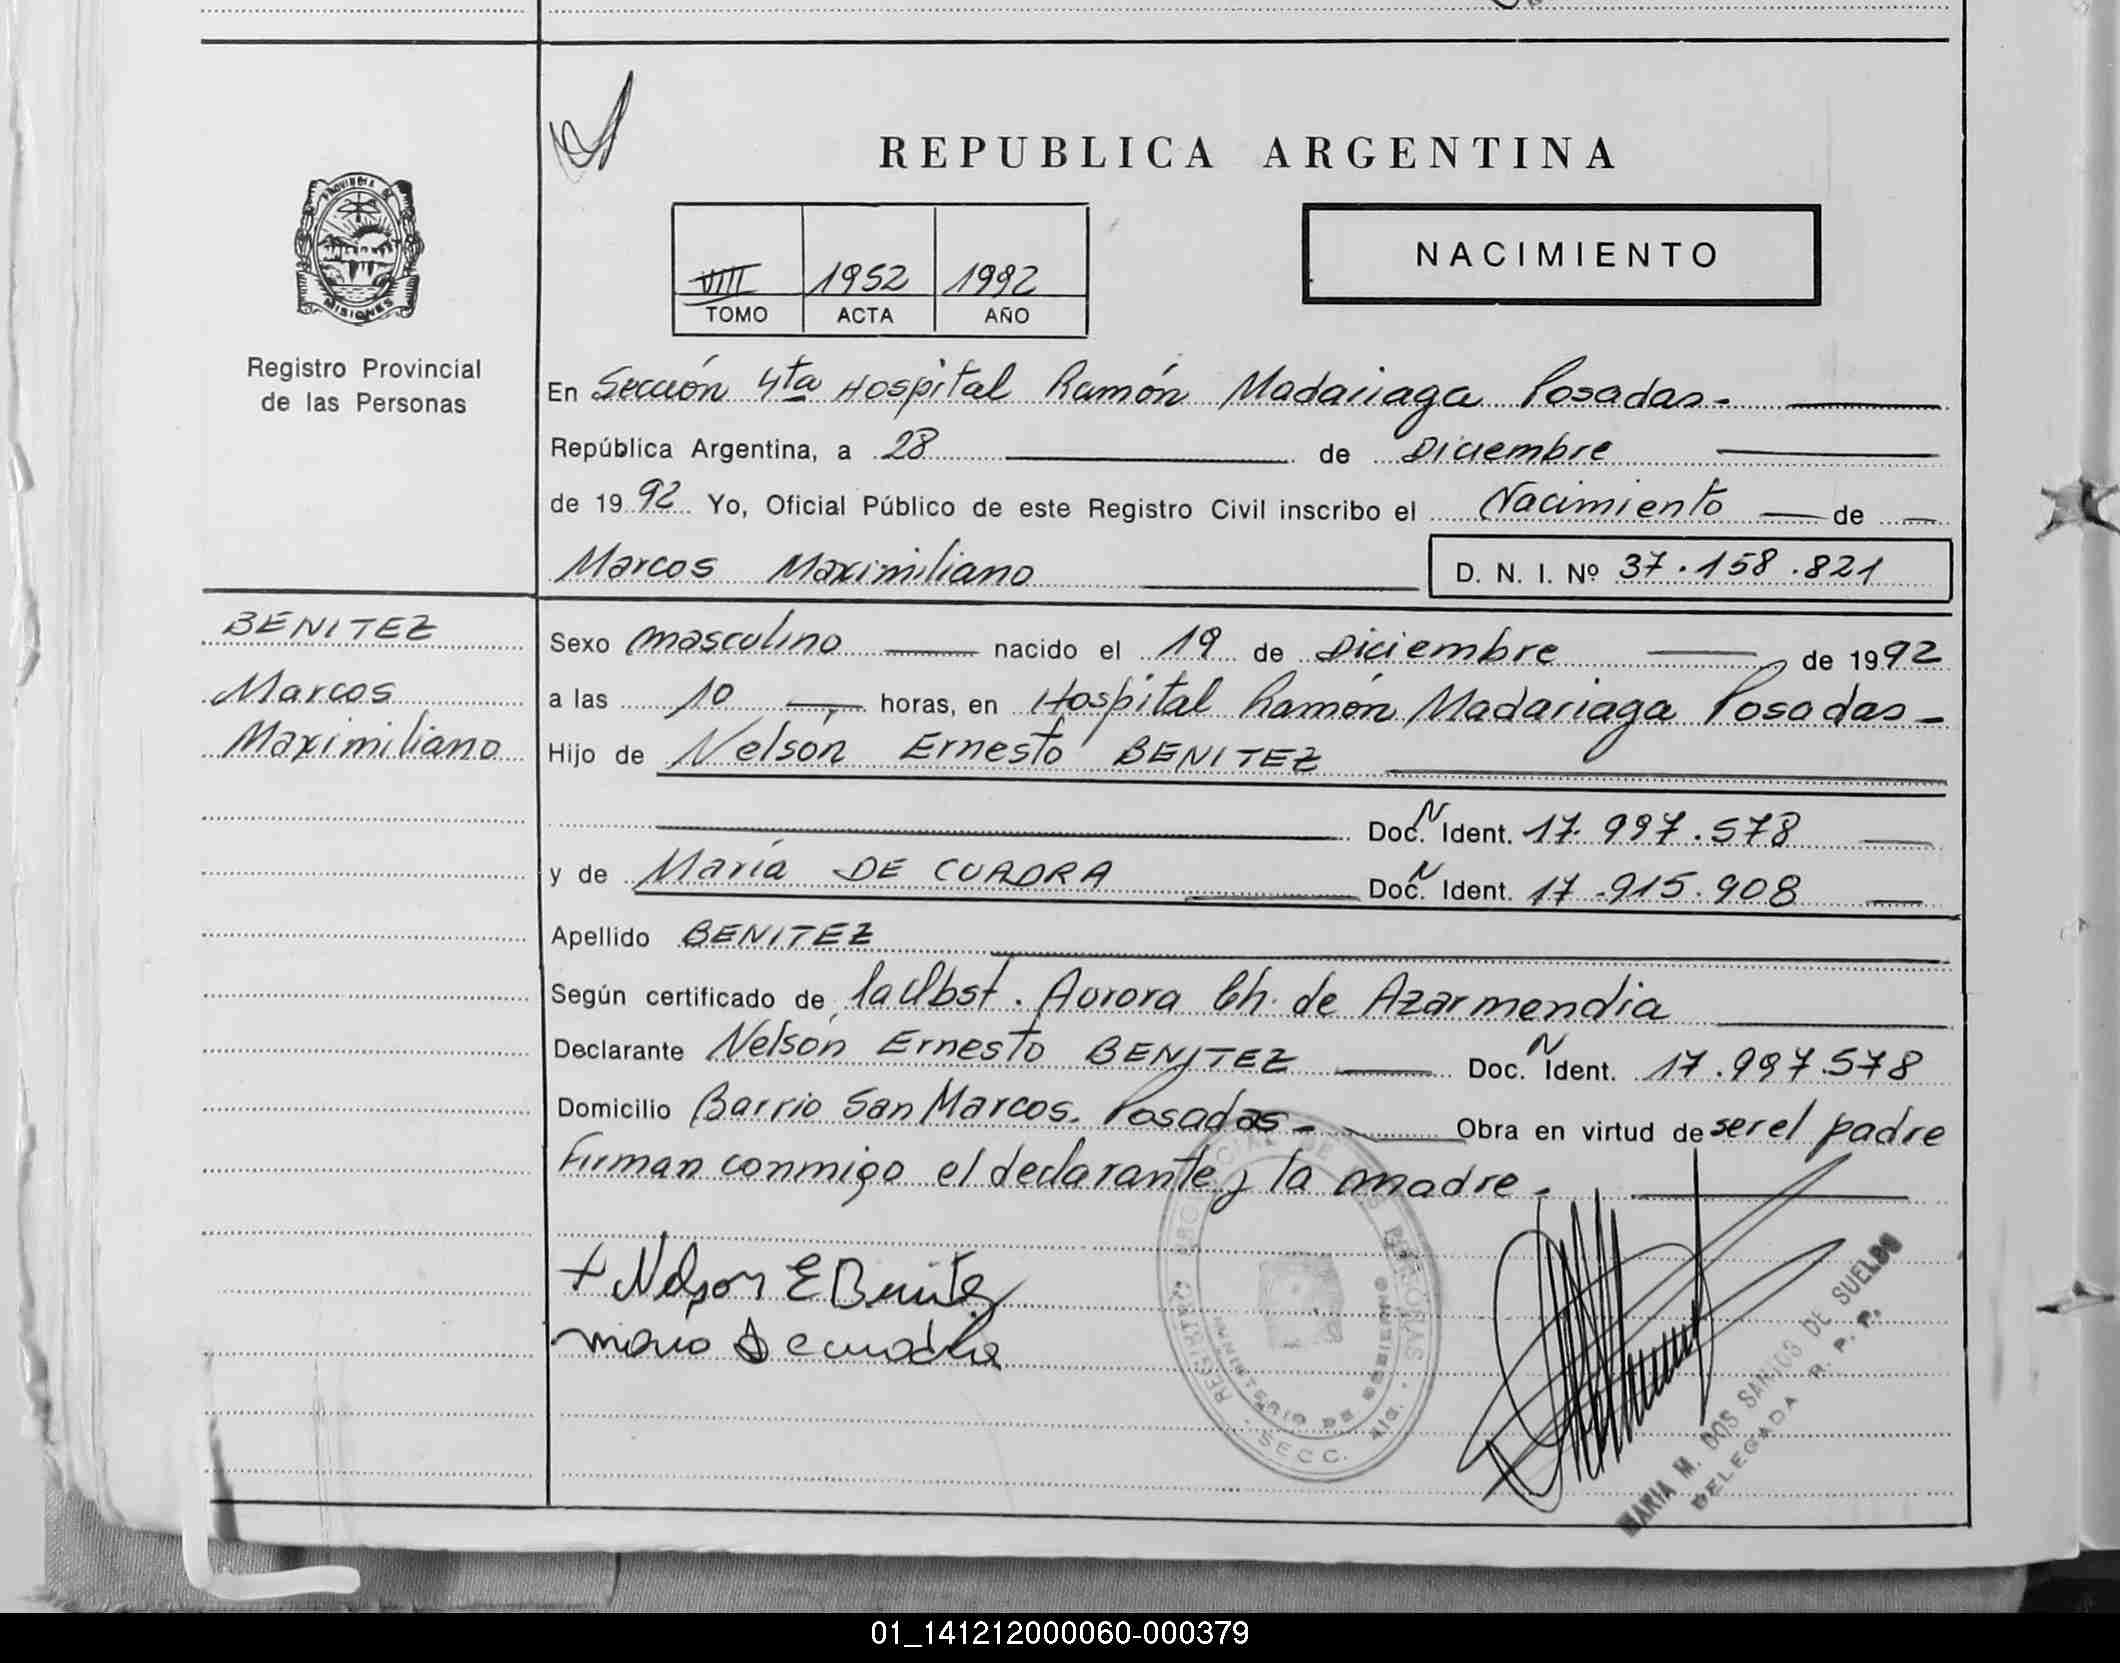 REPUBLICA ARGENTINA
PROVINCIA DE
MISIONES
Registro Provincial
de las Personas
VIII 1952 1992
TOMO ACTA AÑO
NACIMIENTO
En Sección 4ta Hospital Ramón Madariaga Posadas.
República Argentina, a 28 de Diciembre
de 1992 Yo, Oficial Público de este Registro Civil inscribo el Nacimiento de
Marcos Maximiliano D. N. I. Nº 37.158.821
BENITEZ
Marcos
Maximiliano
Sexo masculino nacido el 19 de Diciembre de 1992
a las 10 horas, en Hospital Ramón Madariaga Posadas
Hijo de Nelsón Ernesto BENITEZ
Doc. N Ident. 17.997.578
y de María DE CUADRA Doc. N Ident. 17.915.908
Apellido BENITEZ
Según certificado de la Obst. Aurora Ch. de Azarmendia
Declarante Nelsón Ernesto BENITEZ Doc. N Ident. 17.997.578
Domicilio Barrio San Marcos. Posadas Obra en virtud de ser el padre
Firman conmigo el declarante y la madre.
+ Nelson E Benitez
maria de cuadra
REGISTRO PROVINCIAL DE LAS PERSONAS
MINISTERIO DE GOBIERNO
SECC. MIS.
MARIA M. DOS SANTOS DE SUELDO
DELEGADA R. P. P.
01_141212000060-000379